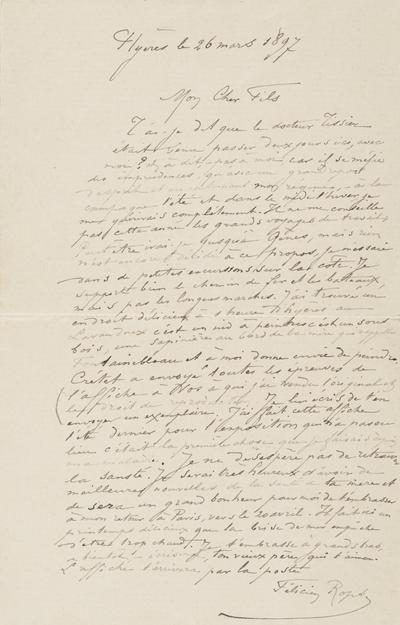 Hyères le 26 mars 1897
Mon Cher Fils
T'ai-je dit que le docteur Tissier
était venu passer deux jours ici, avec
moi? Il a dit, pas à moi, car il se méfie
des imprudences, qu'avec un grand repos
d'esprit et en suivant mon régime, à la
campagne l'été et dans le midi l'hiver, je
me guérirais complètement. Il ne me conseille
pas cette année les grands voyages de travail.
Peut être irai-je jusqu'à Gênes, mais rien
n'est encore décidé à ce propos, je m'essaie
dans de petites excursions sur la côte. Je
supporte bien le chemin de fer et les bateaux,
mais pas les longues marches. J'ai trouvé un
endroit délicieux à 1 heure d'Hyères au
Lavandoux c'est un nid à peintres c'est un sous
bois, une sapinière au bord de la mer qui rappelle
Fontainebleau et m'a donné envie de peindre.
Crétet a envoyé toutes les épreuves de
l'affiche à à qui j'ai vendu l'original et
le droit de reproduction. Je lui écris de t'en
envoyer un exemplaire. J'ai fait cette affiche
l'été dernier pour l'exposition qui n'a pas eu
lieu c'était la première chose que je faisais depuis
ma maladie. Je ne désespère pas de retrouver
la santé. Je serai très heureux d'avoir de
meilleures nouvelles de la santé de ta mère et
ce sera un grand bonheur pour moi de t'embrasser
à mon retour à Paris, vers le 20 avril. Il fait ici un
printemps délicieux que la brise de mer empêche
d'être trop chaud. Je t'embrasse à grands bras,
à bientôt! écris-moi, ton vieux père qui t'aime
L'affiche t'arrivera par la poste
Félicien Rops